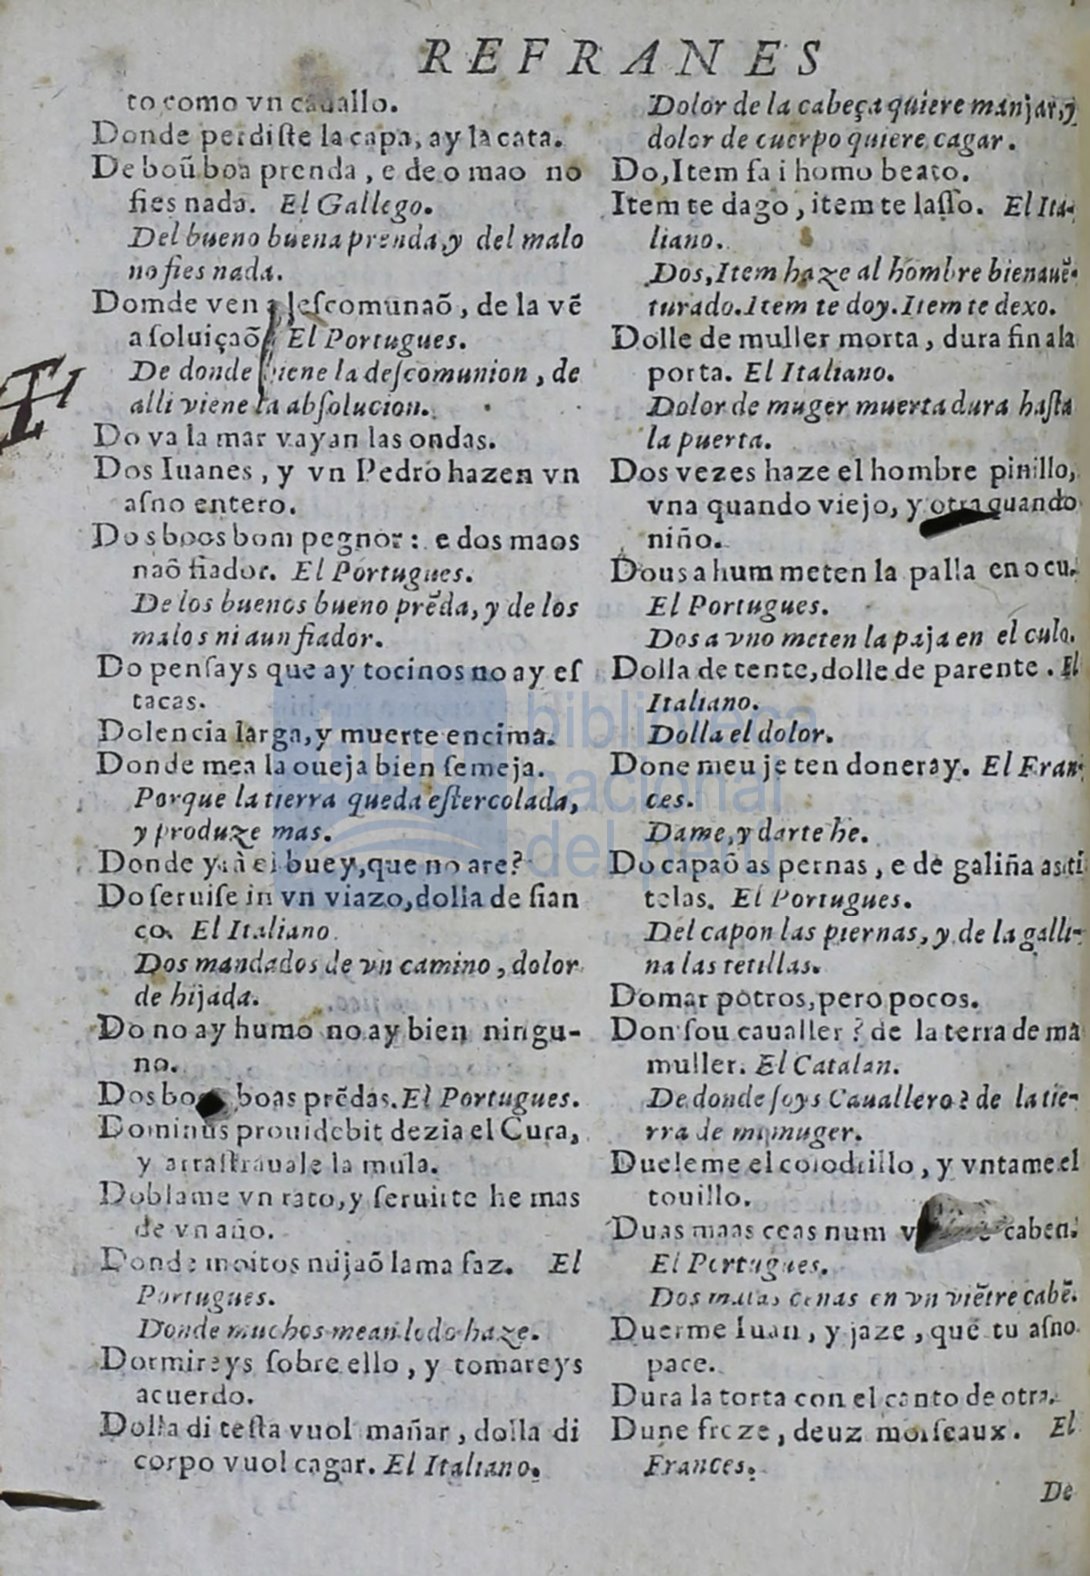 REFRANES
to como vn cauallo.
Donde perdiſte la capa, ay la cata.
De boũ boa prenda, e de o mao no
fies nada. El Gallego.
Del bueno buena prenda, y del malo
no fies nada.
Domde ven a deſcomunaõ, de la vẽ
a ſoluiçaõ El Portugues.
De donde viene la deſcomunion, de
alli viene la abſolucion.
Do va la mar vayan las ondas.
Dos Iuanes, y vn Pedro hazen vn
aſno entero.
Dos boos bom pegnor: e dos maos
naõ fiador. El Portugues.
De los buenos bueno prẽda, y de los
malos ni aun fiador.
Do penſays que ay tocinos no ay eſ
tacas.
Dolencia larga, y muerte encima.
Donde mea la oueja bien ſemeja.
Porque la tierra queda eſtercolada,
y produze mas.
Donde yrà el buey, que no are?
Do ſeruiſe in vn viazo, dolla de fian
co. El Italiano.
Dos mandados de vn camino, dolor
de hijada.
Do no ay humo no ay bien ningu-
no.
Dos boos boas prẽdas. El Portugues.
Dominus prouidebit dezia el Cura,
y arraſtrauale la mula.
Doblame vn rato, y ſeruirte he mas
de vn año.
Donde moitos mijaõ lama faz. El
Portugues.
Donde muchos mean lodo haze.
Dormireys ſobre ello, y tomareys
acuerdo.
Dolla di teſta vuol mañar, dolla di
corpo vuol cagar. El Italiano.
Dolor de la cabeça quiere manjar, y
dolor de cuerpo quiere cagar.
Do, Item fa i homo beato.
Item te dago, item te laſſo. El Ita-
liano.
Dos, Item haze al hombre bienauẽ-
turado. Item te doy. Item te dexo.
Dolle de muller morta, dura fin a la
porta. El Italiano.
Dolor de muger muerta dura haſta
la puerta.
Dos vezes haze el hombre pinillo,
vna quando viejo, y otra quando
niño.
Dous a hum meten la palla en o cu.
El Portugues.
Dos a vno meten la paja en el culo.
Dolla de tente, dolle de parente. El
Italiano.
Dolla el dolor.
Done meu je ten doneray. El Fran-
ces.
Dame, y darte he.
Do capaõ as pernas, e de galiña as ti
telas. El Portugues.
Del capon las piernas, y de la galli-
na las tetillas.
Domar potros, pero pocos.
Don ſou caualler? de la terra de ma
muller. El Catalan.
De donde ſoys Cauallero? de la tie-
rra de mi muger.
Dueleme el colodrillo, y vntame el
touillo.
Duas maas ceas num caben.
El Portugues.
Dos malas cenas en vn viẽtre cabẽ.
Duerme Iuan, y jaze, que tu aſno
pace.
Dura la torta con el canto de otra.
Dune freze, deuz morſeaux. El
Frances.
De
biblioteca
nacional
del perú